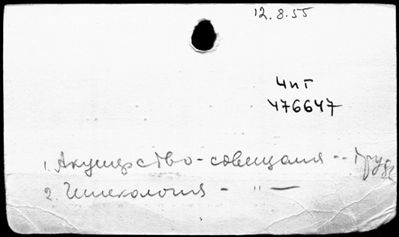 12.8.55
Чит
476647
1. Акушерство - совещания -- Труды
2. Гинекология - " —